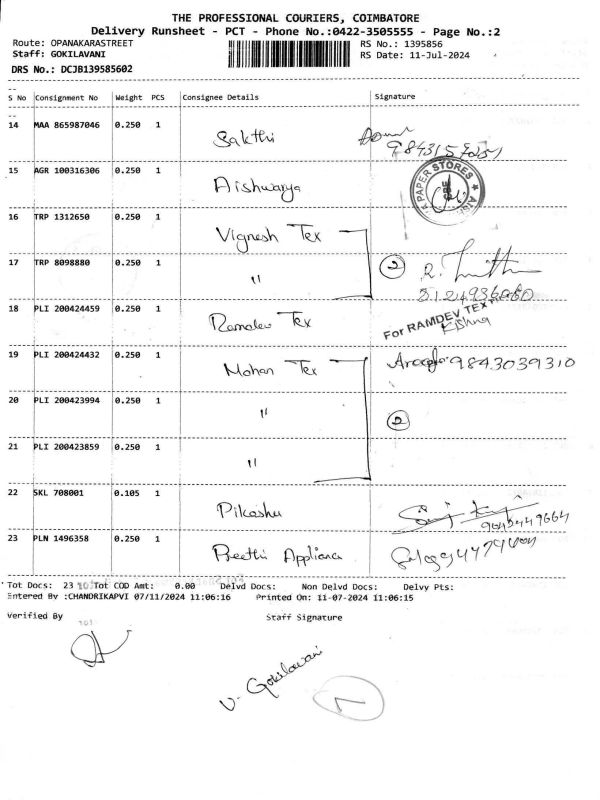 THE PROFESSIONAL COURIERS, COIMBATORE
Delivery Runsheet - PCT - Phone No.:0422-3505555 - Page No.:2
Route: OPANAKARASTREET RS No.: 1395856
Staff: GOKILAVANI RS Date: 11-Jul-2024
DRS No.: DCJB139585602
S No Consignment No Weight PCS Consignee Details Signature
14 MAA 865987046 0.250 1 Sakthi
15 AGR 100316306 0.250 1 Aishwarya
PAPER STORES
16 TRP 1312650 0.250 1 Vignesh Tex
17 TRP 8098880 0.250 1 " 2
18 PLI 200424459 0.250 1 Ramdev Tex For RAMDEV TEX
Kishna
19 PLI 200424432 0.250 1 Mohan Tex 9843039310
20 PLI 200423994 0.250 1 " 2
21 PLI 200423859 0.250 1 "
22 SKL 708001 0.105 1 Pikashu
23 PLN 1496358 0.250 1 Preethi Applianc
Tot Docs: 23 Tot COD Amt: 0.00 Delvd Docs: Non Delvd Docs: Delvy Pts:
Entered By :CHANDRIKAPVI 07/11/2024 11:06:16 Printed On: 11-07-2024 11:06:15
Verified By Staff Signature
V. Gokilavani